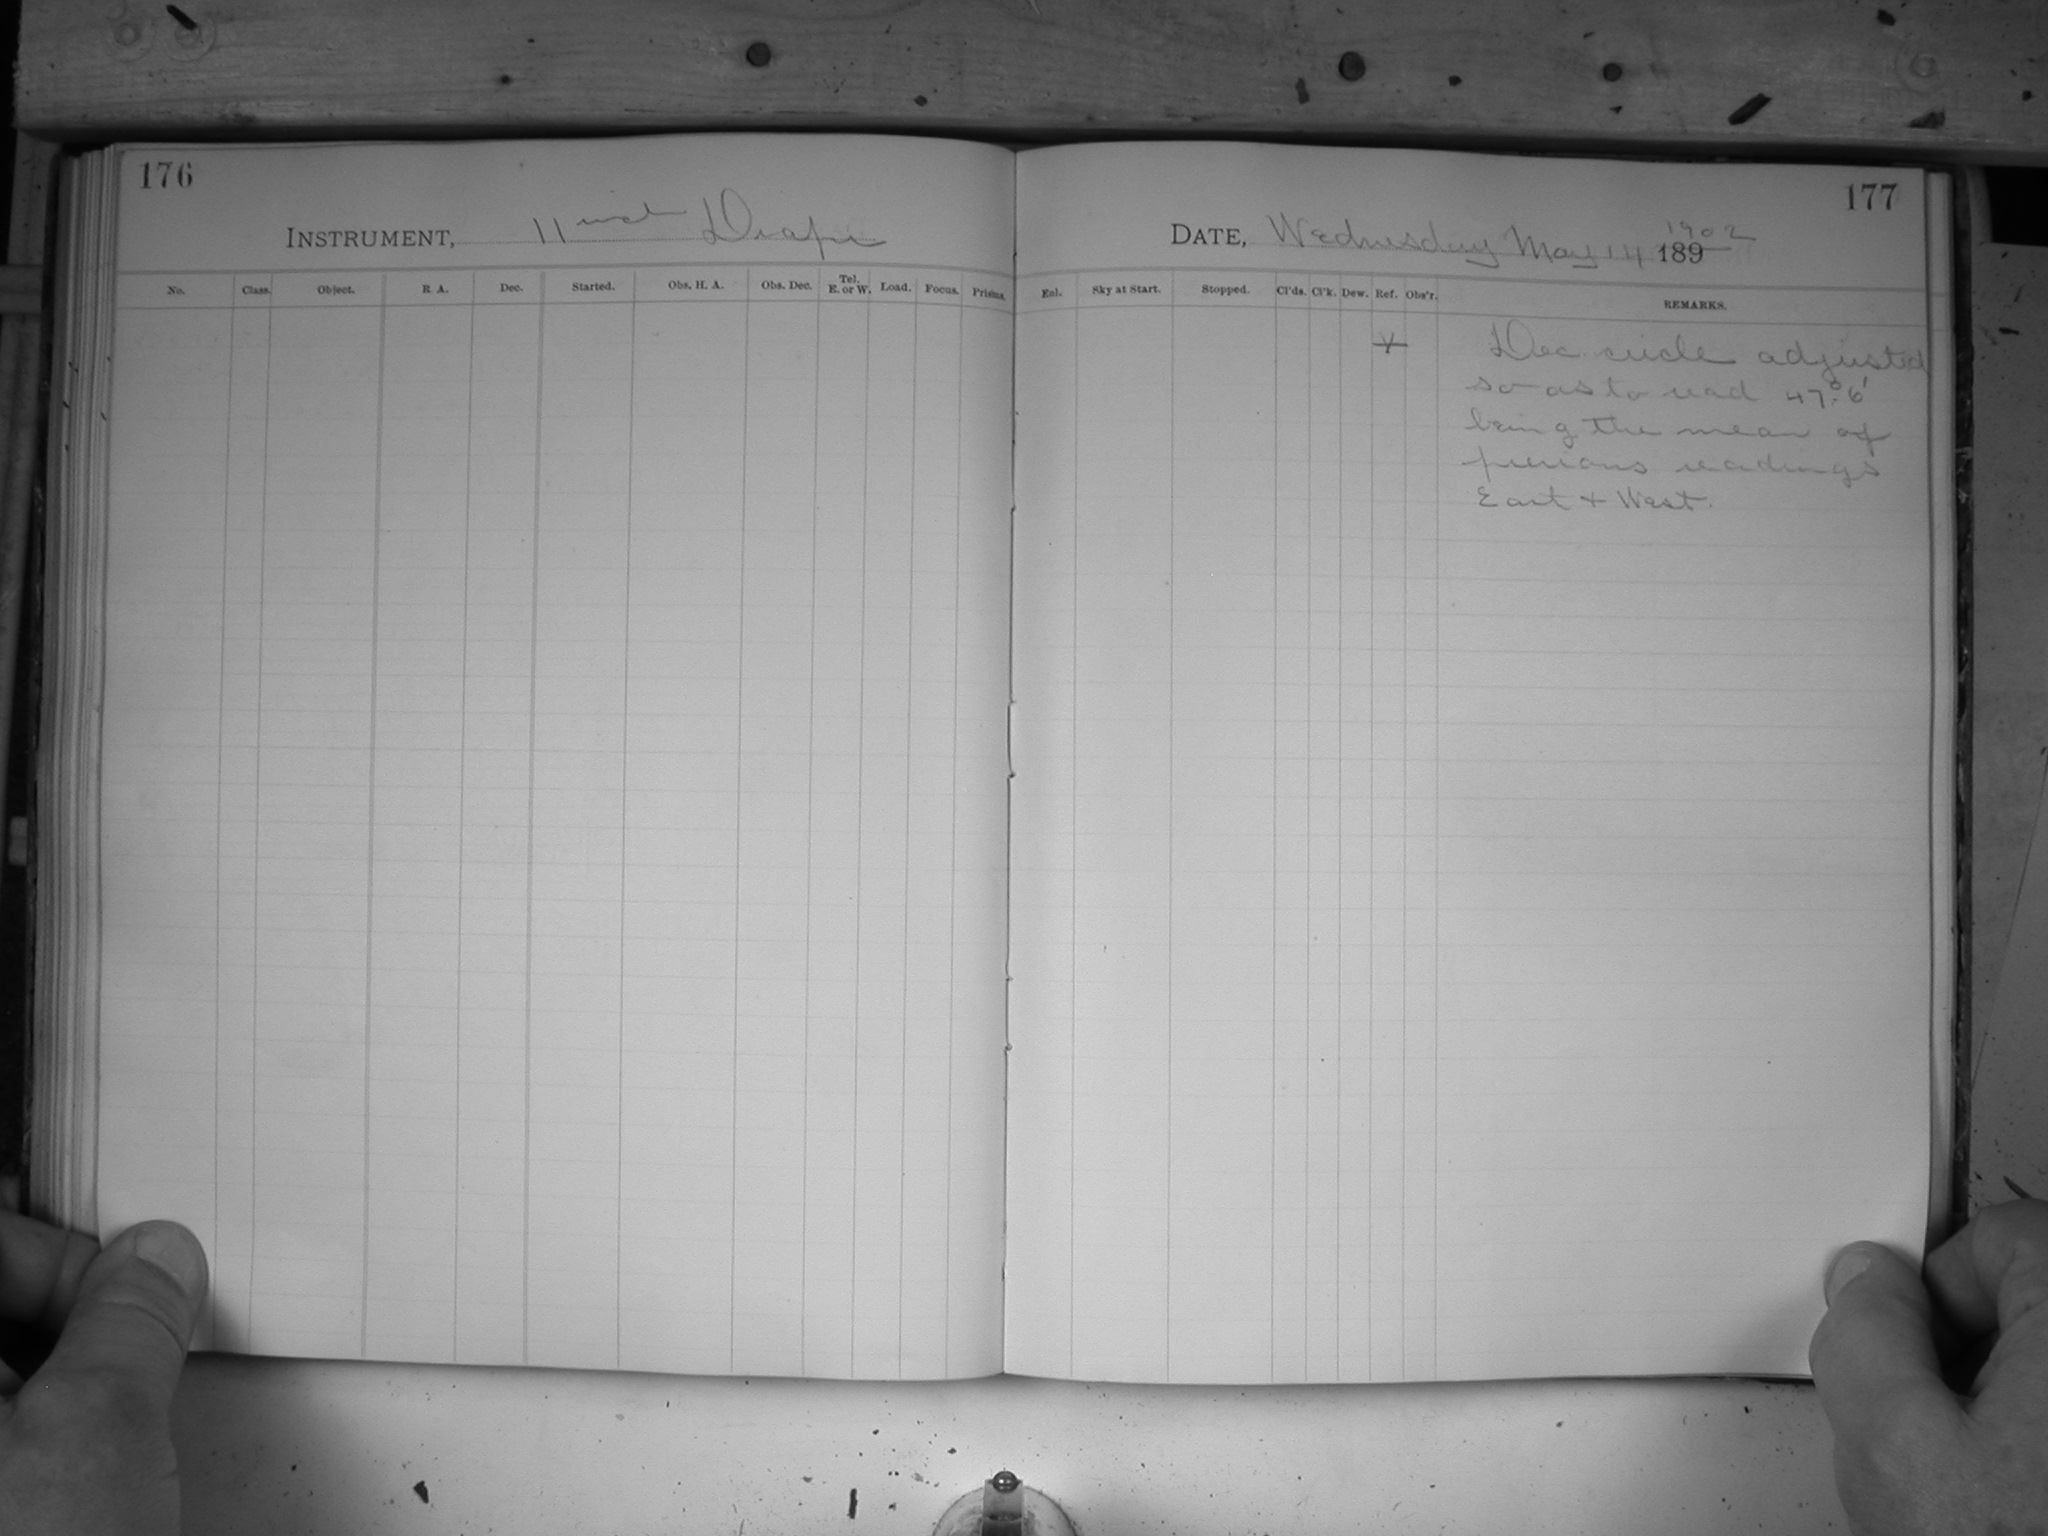 176
INSTRUMENT, 11 inch Draper
No. Class. Object. R A. Dec. Started. Obs. H. A. Obs. Dec. Tel. E. or W. Load. Focus. Prisms.
177
DATE, Wednesday May 14 189 1902
Enl. Sky at Start. Stopped. Cl'ds. Cl'k. Dew. Ref. Obs'r. REMARKS.
Dec. circle adjusted
so as to read 47°.6'
being the mean of
previous readings
East + West.